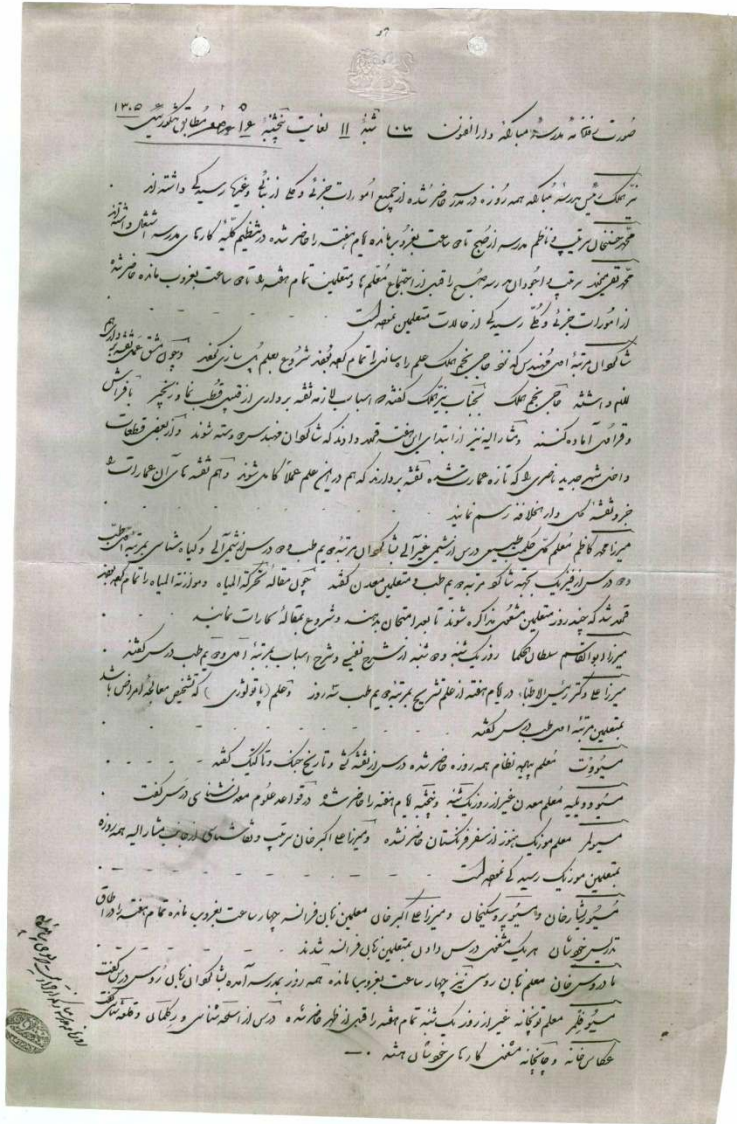 ۵۷
صورت روزنامه مدرسهٔ مبارکه دارالفنون شنبهٔ ۱۱ لغایت پنجشنبهٔ ۱۶ شهر صفر مطابق سنهٔ ۱۳۰۵
نیرالملک رئیس مدرسهٔ مبارکه همه روزه در مدرسه حاضر شده از جمیع امورات جزئی و کلی از بنائی و غیرها رسیدگی داشته‌اند
محمدحسنخان سرتیپ و ناظم مدرسه از صبح تا ساعت بغروب مانده تمام هفته را حاضر شده در تنظیم کلیهٔ کارهای مدرسه اشتغال داشته‌اند
محمدتقی سرتیپ و اجودان مدرسه صبح را قبل از اجتماع معلم‌ها و متعلمین تمام هفته را تا ساعت بغروب مانده حاضر شده
از امورات جزئی و کلی رسیدگی از حالات متعلمین نموده است
شاگردان مرتبهٔ اول مهندس که نزد حاجی نجم الملک علم را تمام کرده بودند شروع بعلم پل سازی کردند و چون مشق عمل نقشه برداری هم
لازم داشتند حاجی نجم الملک بجناب نیرالملک گفته اسباب لازمه نقشه برداری از قبیل قطب نما و زنجیر با فراش
و قراول آماده کنند و مشارالیه نیز از ابتدای این هفته قرار دادند که شاگردان مهندس دسته شوند و از بعضی قطعات
داخل شهر جدید ناصری که تازه عمارت شده نقشه بردارند که هم در این علم عملاً کامل شوند و هم نقشه‌های آن عمارات را
جزو نقشه کلی دارالخلافه رسم نمایند
میرزا محمد کاظم معلم طبیعی درس از شیمی غیرآلی بشاگردان مرتبهٔ دویم طب و درس از شیمی آلی و گیاه شناسی بمرتبهٔ اول طب
و درس از فیزیک بجهة شاگردان مرتبهٔ دویم طب و متعلمین معدن گفته چون مقالهٔ حرکة المیاه و موازنة المیاه را تمام کرده بودند
قرار شد که چند روز متعلمین مشغول مذاکره شوند تا بعد امتحان بدهند و شروع بمقالهٔ حرارت نمایند
میرزا ابوالقاسم سلطان الحکما روز یکشنبه و شنبه از شرح نفیسی و شرح اسباب بمرتبهٔ اول و دویم طب درس گفتند
میرزا علی دکتر رئیس الاطبا، در ایام هفته از علم تشریح بمرتبهٔ دویم طب سه روز و علم (پاتولوژی) که تشخیص معالجهٔ امراض باشد
بمتعلمین مرتبهٔ اول طب درس گفته
مسیو وت معلم پیاده نظام همه روزه حاضر شده درس از نقشه کشی و تاریخ جنگ و تاکتیک گفته
مسیو دویلیه معلم معدن غیر از روز یکشنبه و پنجشنبه تمام هفته را حاضر شده در قواعد علوم معدن شناسی درس گفت
مسیو لمر معلم موزیک هنوز از سفر فرنگستان حاضر نشده و میرزا علی اکبر خان سرتیپ و نقاشباشی از جانب مشارالیه همه روزه
بمتعلمین موزیک رسیدگی نموده است
مسیو ریشارخان و مسیو پروسکیخان و میرزا علی اکبر خان معلمین زبان فرانسه چهار ساعت بغروب مانده تمام هفته را در اطاق
تدریس خودشان هر یک مشغول درس دادن بمتعلمین زبان فرانسه شدند
مادروس خان معلم زبان روسی نیز چهار ساعت بغروب مانده همه روز بمدرسه آمده بشاگردان زبان روس درس گفت
مسیو معلم توپخانه غیر از روز یکشنبه تمام هفته را قبل از ظهر حاضر شده درس از اسلحه شناسی و قلعه سازی گفت
عکاس خانه و چاپخانه مشغول کارهای خودشان هستند